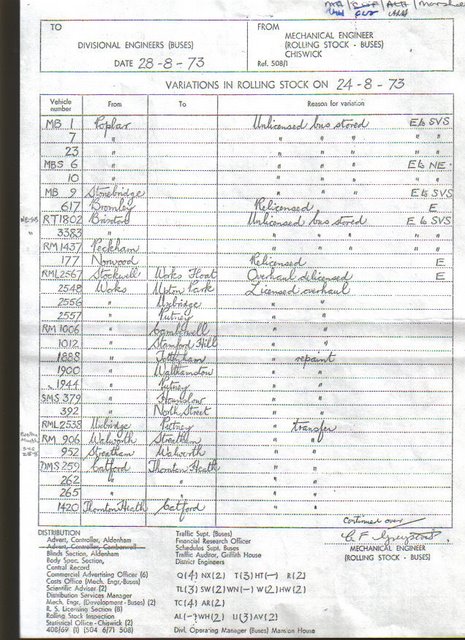 TO
DIVISIONAL ENGINEERS (BUSES)
DATE 28-8-73
FROM
MECHANICAL ENGINEER
(ROLLING STOCK - BUSES)
CHISWICK
Ref. 508/1
VARIATIONS IN ROLLING STOCK ON 24-8-73
Vehicle number From To Reason for variation
MB 1 Poplar Unlicensed bus stored E to SVS
7 " " " " " "
23 " " " " " "
MBS 6 " " " " E to NE.
10 " " " " " "
MB 9 Stonebridge " " " E to SVS
617 Bromley Relicensed E
RT1802 Brixton Unlicensed bus stored E to SVS
3383 " " " " " "
RM1437 Peckham " " " " "
177 Norwood Relicensed E
RML2567 Stockwell Works Float Overhaul delicensed E
2548 Works Upton Park Licensed overhaul
2556 " Uxbridge " "
2557 " Putney " "
RM 1006 " Camberwell " "
1012 " Stamford Hill " "
1888 " Tottenham " repaint
1900 " Walthamstow " "
1944 " Putney " "
SMS 379 " Hounslow " "
392 " North Street " "
RML2538 Uxbridge Putney " transfer
RM 906 Walworth Streatham " "
952 Streatham Walworth " "
DMS 259 Catford Thornton Heath " "
262 " " " "
265 " " " "
1420 Thornton Heath Catford " "
Continued over
MECHANICAL ENGINEER
(ROLLING STOCK - BUSES)
DISTRIBUTION
Advert, Controller, Aldenham
Advert, Controller, Camberwell
Blinds Section, Aldenham
Body Spec. Section,
Central Record
Commercial Advertising Officer (6)
Costs Office (Mech. Engr.-Buses)
Scientific Adviser (2)
Distribution Services Manager
Mech. Engr. (Development - Buses) (2)
R. S. Licensing Section (8)
Rolling Stock Inspection
Statistical Office - Chiswick (2)
Traffic Supt. (Buses)
Financial Research Officer
Schedules Supt. Buses
Traffic Auditor, Griffith House
District Engineers
Q(4) NX(2) T(3) HT(-) R(2)
TL(3) SW(2) WN(-) W(2) HW(2)
TC(4) AR(2)
AL(-) WH(2) U(3) AV(2)
Divl. Operating Manager (Buses) Mansion House